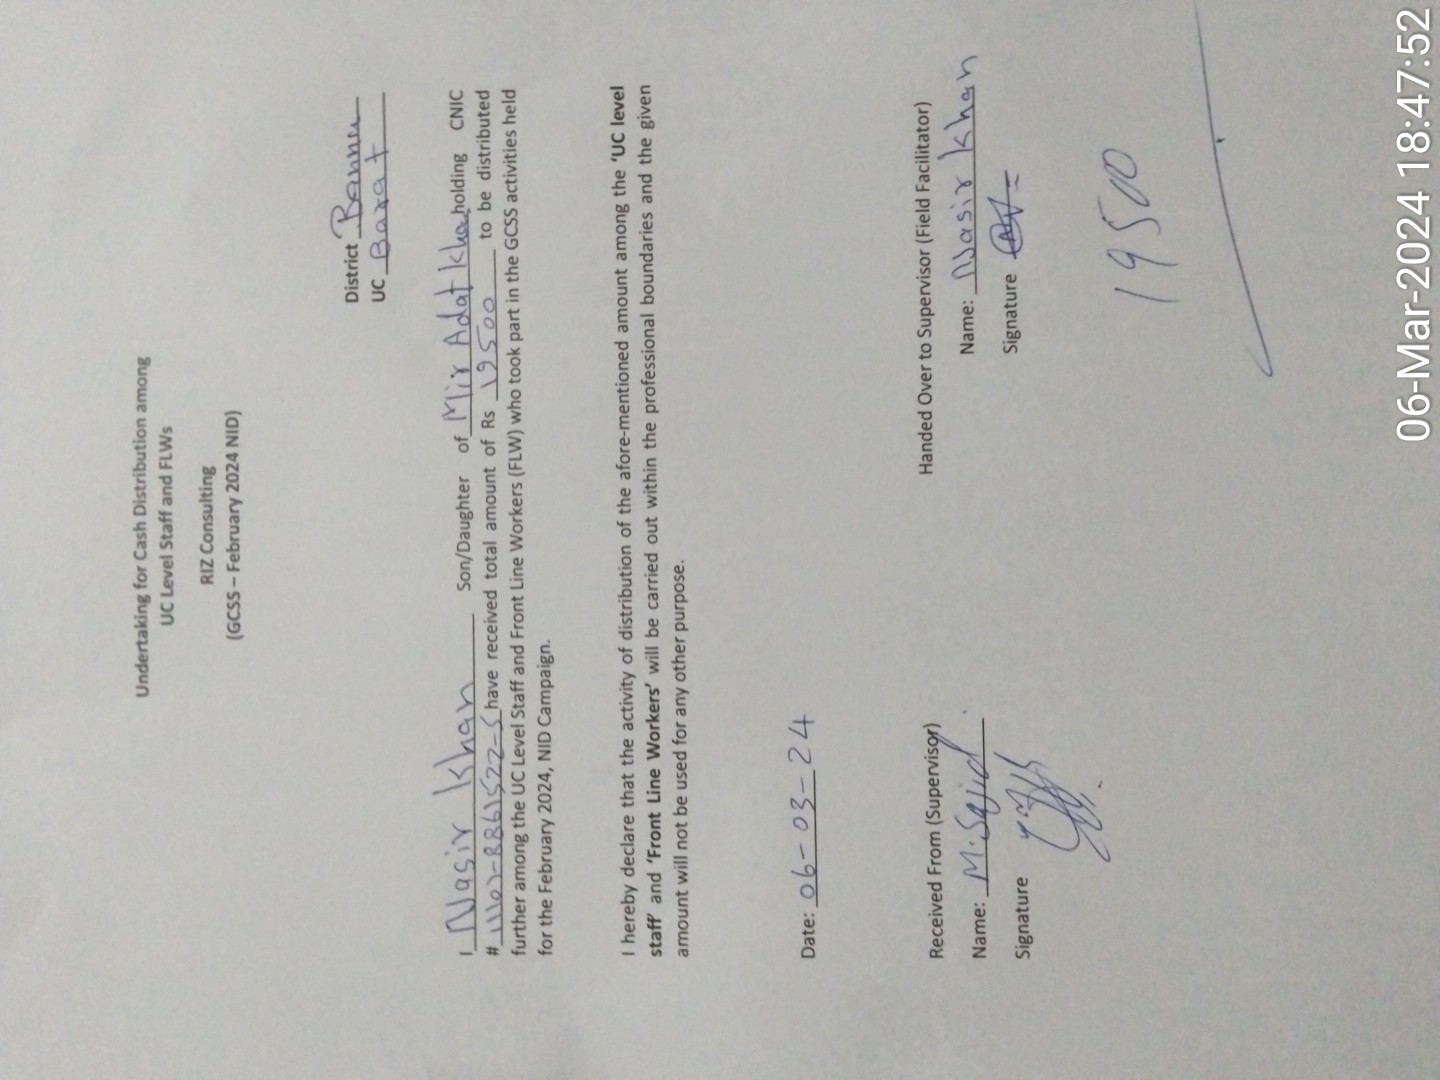 Undertaking for Cash Distribution among
UC Level Staff and FLWs
RIZ Consulting
(GCSS – February 2024 NID)
District Bannu
UC Barat
I Nasir Khan Son/Daughter of Mir Adat Kha holding CNIC
# 11101-8861522-5 have received total amount of Rs 19500 to be distributed
further among the UC Level Staff and Front Line Workers (FLW) who took part in the GCSS activities held
for the February 2024, NID Campaign.
I hereby declare that the activity of distribution of the afore-mentioned amount among the 'UC level
staff' and 'Front Line Workers' will be carried out within the professional boundaries and the given
amount will not be used for any other purpose.
Date: 06-03-24
Received From (Supervisor)
Handed Over to Supervisor (Field Facilitator)
Name: M.Sajid
Name: Nasir Khan
Signature
Signature
19500
06-Mar-2024 18:47:52